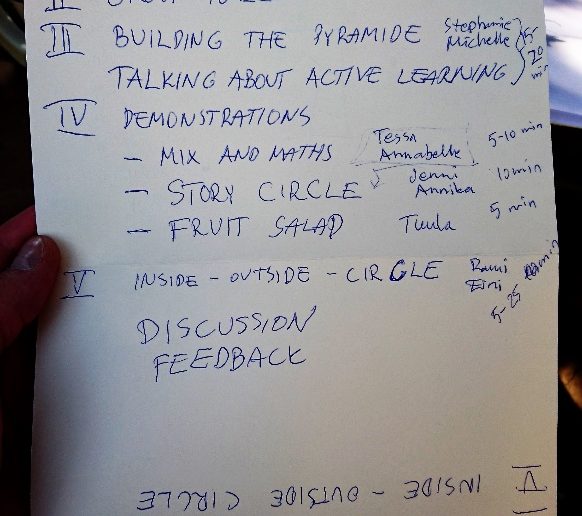 II
III BUILDING THE PYRAMIDE Stephanie
Michelle
TALKING ABOUT ACTIVE LEARNING 20 min
IV DEMONSTRATIONS
- MIX AND MATHS Tessa Annabelle 5-10 min
- STORY CIRCLE Jenni Annika 10 min
- FRUIT SALAD Tuula 5 min
V INSIDE - OUTSIDE - CIRCLE Rami Eini
DISCUSSION
FEEDBACK
V INSIDE - OUTSIDE CIRCLE